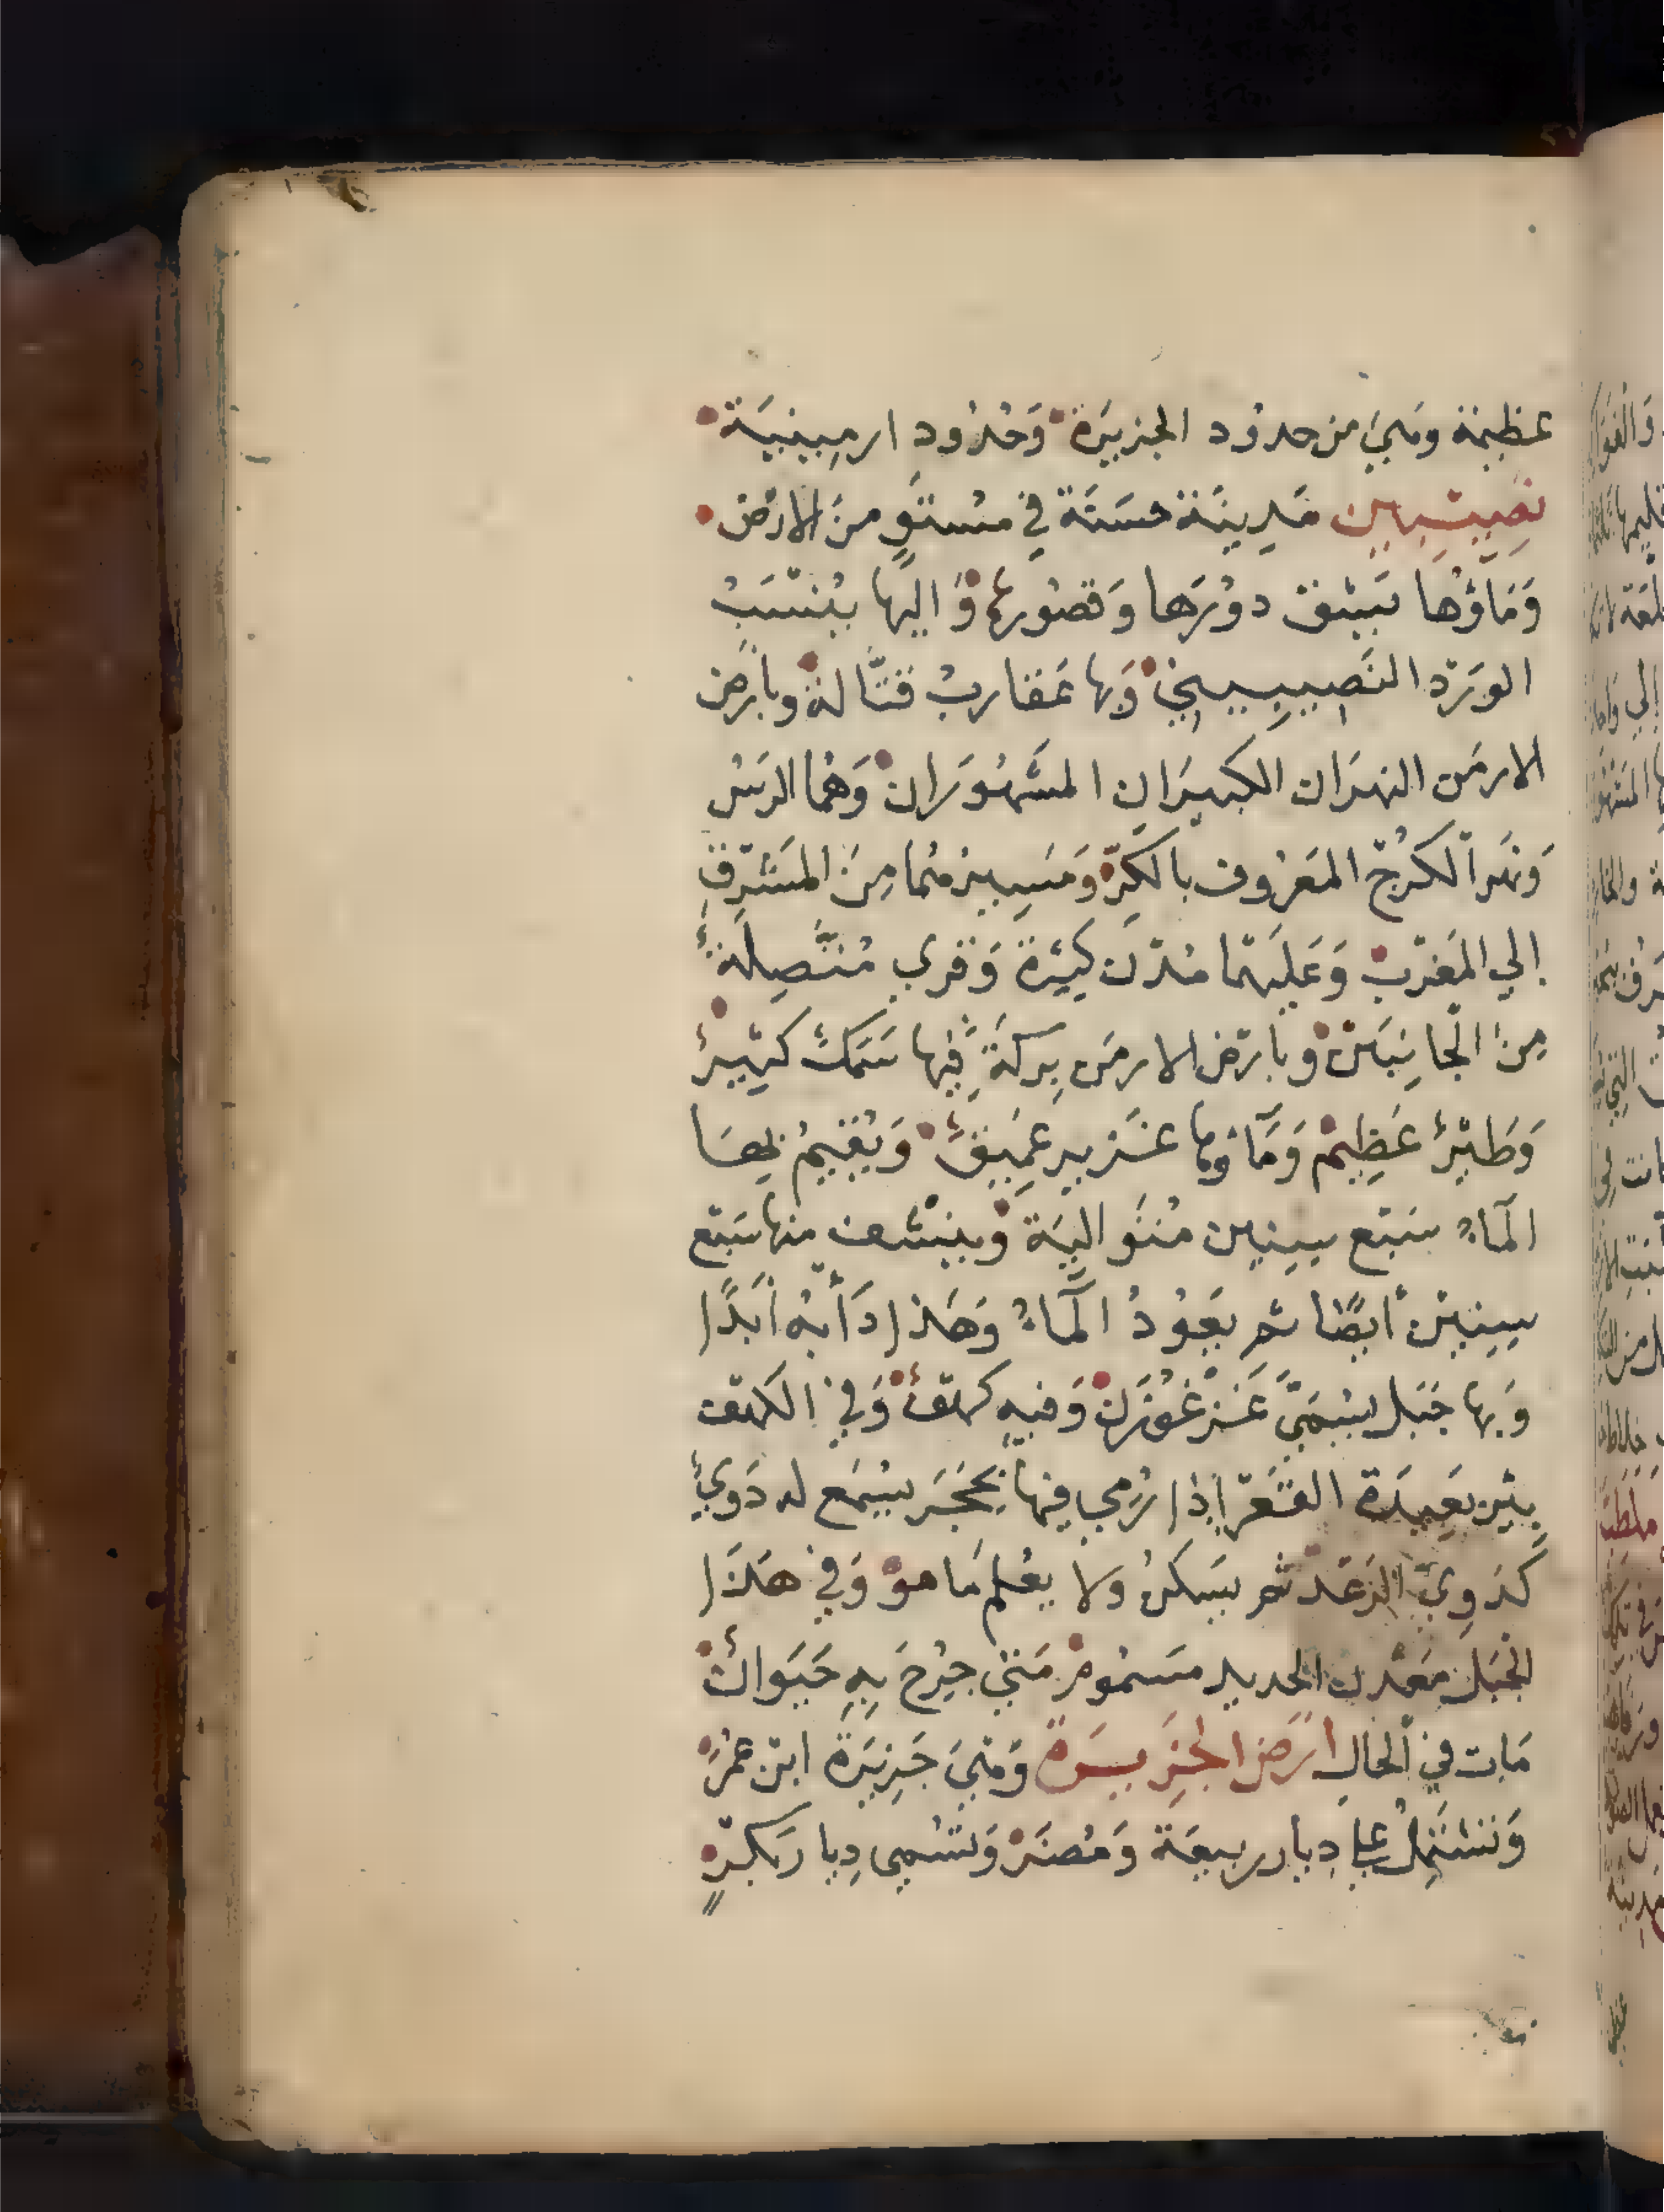 عظيمة وهي من حدود الجزيرة وحدود ارمينية
نصيبين مدينة حسنة في مستو من الارض
وماؤها يشق دورها وقصورها واليها ينسب
الورد النصيبيني وبها عقارب قتالة وبارض
الارمن النهران الكبيران المشهوران وهما الرس
ونهر الكرج المعروف بالكر ومسيرهما من المشرق
الي المغرب وعليهما مدن كبيرة وقري متصلة
من الجانبين وبارض الارمن بركة فيها سمك كثير
وطير عظيم وماؤها غزير عميق ويقيم بها
الماء سبع سنين متوالية وينشف منها سبع
سنين أيضا ثم يعود الماء وهذا دأبه أبدا
وبها جبل يسمي غرغور وفيه كهف وفي الكهف
بئر بعيدة القعر إذا رمي فيها بحجر يسمع له دوي
كدوي الرعد ثم يسكن ولا يعلم ما هو وفي هذا
الجبل معدن الحديد مسموم متي جرح به حيوان
مات في الحال ارض الجزيرة وهي جزيرة ابن عمر
وتشتمل علي ديار ربيعة ومضر وتسمي ديار بكر